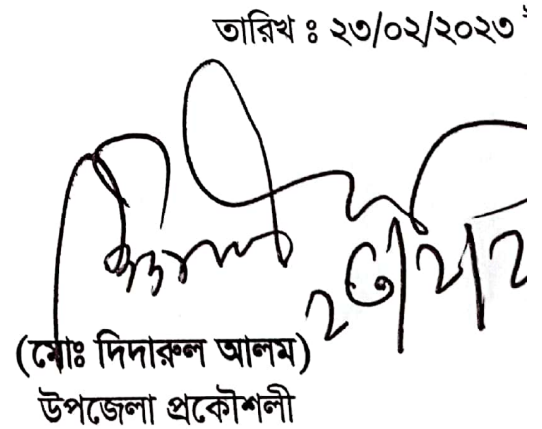 তারিখ ঃ ২৩/০২/২০২৩
(মোঃ দিদারুল আলম)
উপজেলা প্রকৌশলী